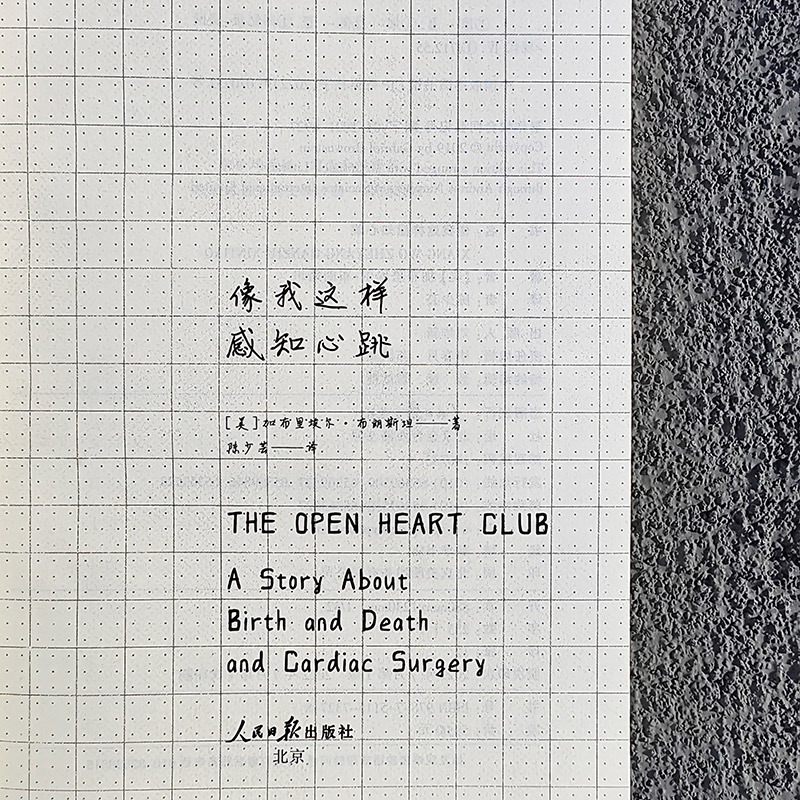 像我这样
感知心跳
[美]加布里埃尔·布朗斯坦——著
陈少芸——译
THE OPEN HEART CLUB
A Story About
Birth and Death
and Cardiac Surgery
人民日报出版社
北京